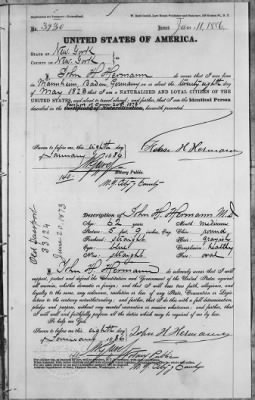 No. 3930 Issued Jan. 11, 1886
UNITED STATES OF AMERICA.
STATE OF New York
COUNTY OF New York
I, John H. Hermann do swear that I was born in
Mannheim, Baden, Germany on or about the twenty eighth day
of May 1823 that I am a NATURALIZED AND LOYAL CITIZEN OF THE
UNITED STATES, and about to travel abroad; and further, that I am the IDENTICAL PERSON
described in the Certificate of Naturalization, herewith presented.
Sworn to before me this eighth day
of January 1886
John H Hermann
Notary Public
N.Y. City & County
Old Passport
33124
June 20, 1873
Description of John H. Hermann M.D.
Age: 62 years Mouth: medium
Stature: 5 ft. 9 inches, Eng. Chin: round
Forehead: straight Hair: grayish
Eyes: blue Complexion: healthy
Nose: straight Face: oval
I, John H. Hermann do solemnly swear that I will
support, protect and defend the Constitution and Government of the United States against
all enemies, whether domestic or foreign; and that I will bear true faith, allegiance, and
loyalty to the same, any ordinance, resolution or law of any State, Convention or Legislature
to the contrary notwithstanding; and further, that I do this with a full determination,
pledge and purpose, without any mental reservation or evasion whatsoever; and further, that
I will well and faithfully perform all the duties which may be required of me by law.
So help me God.
Sworn to before me this eighth day
of January 1886
John H Hermann
Notary Public
N.Y. City & County